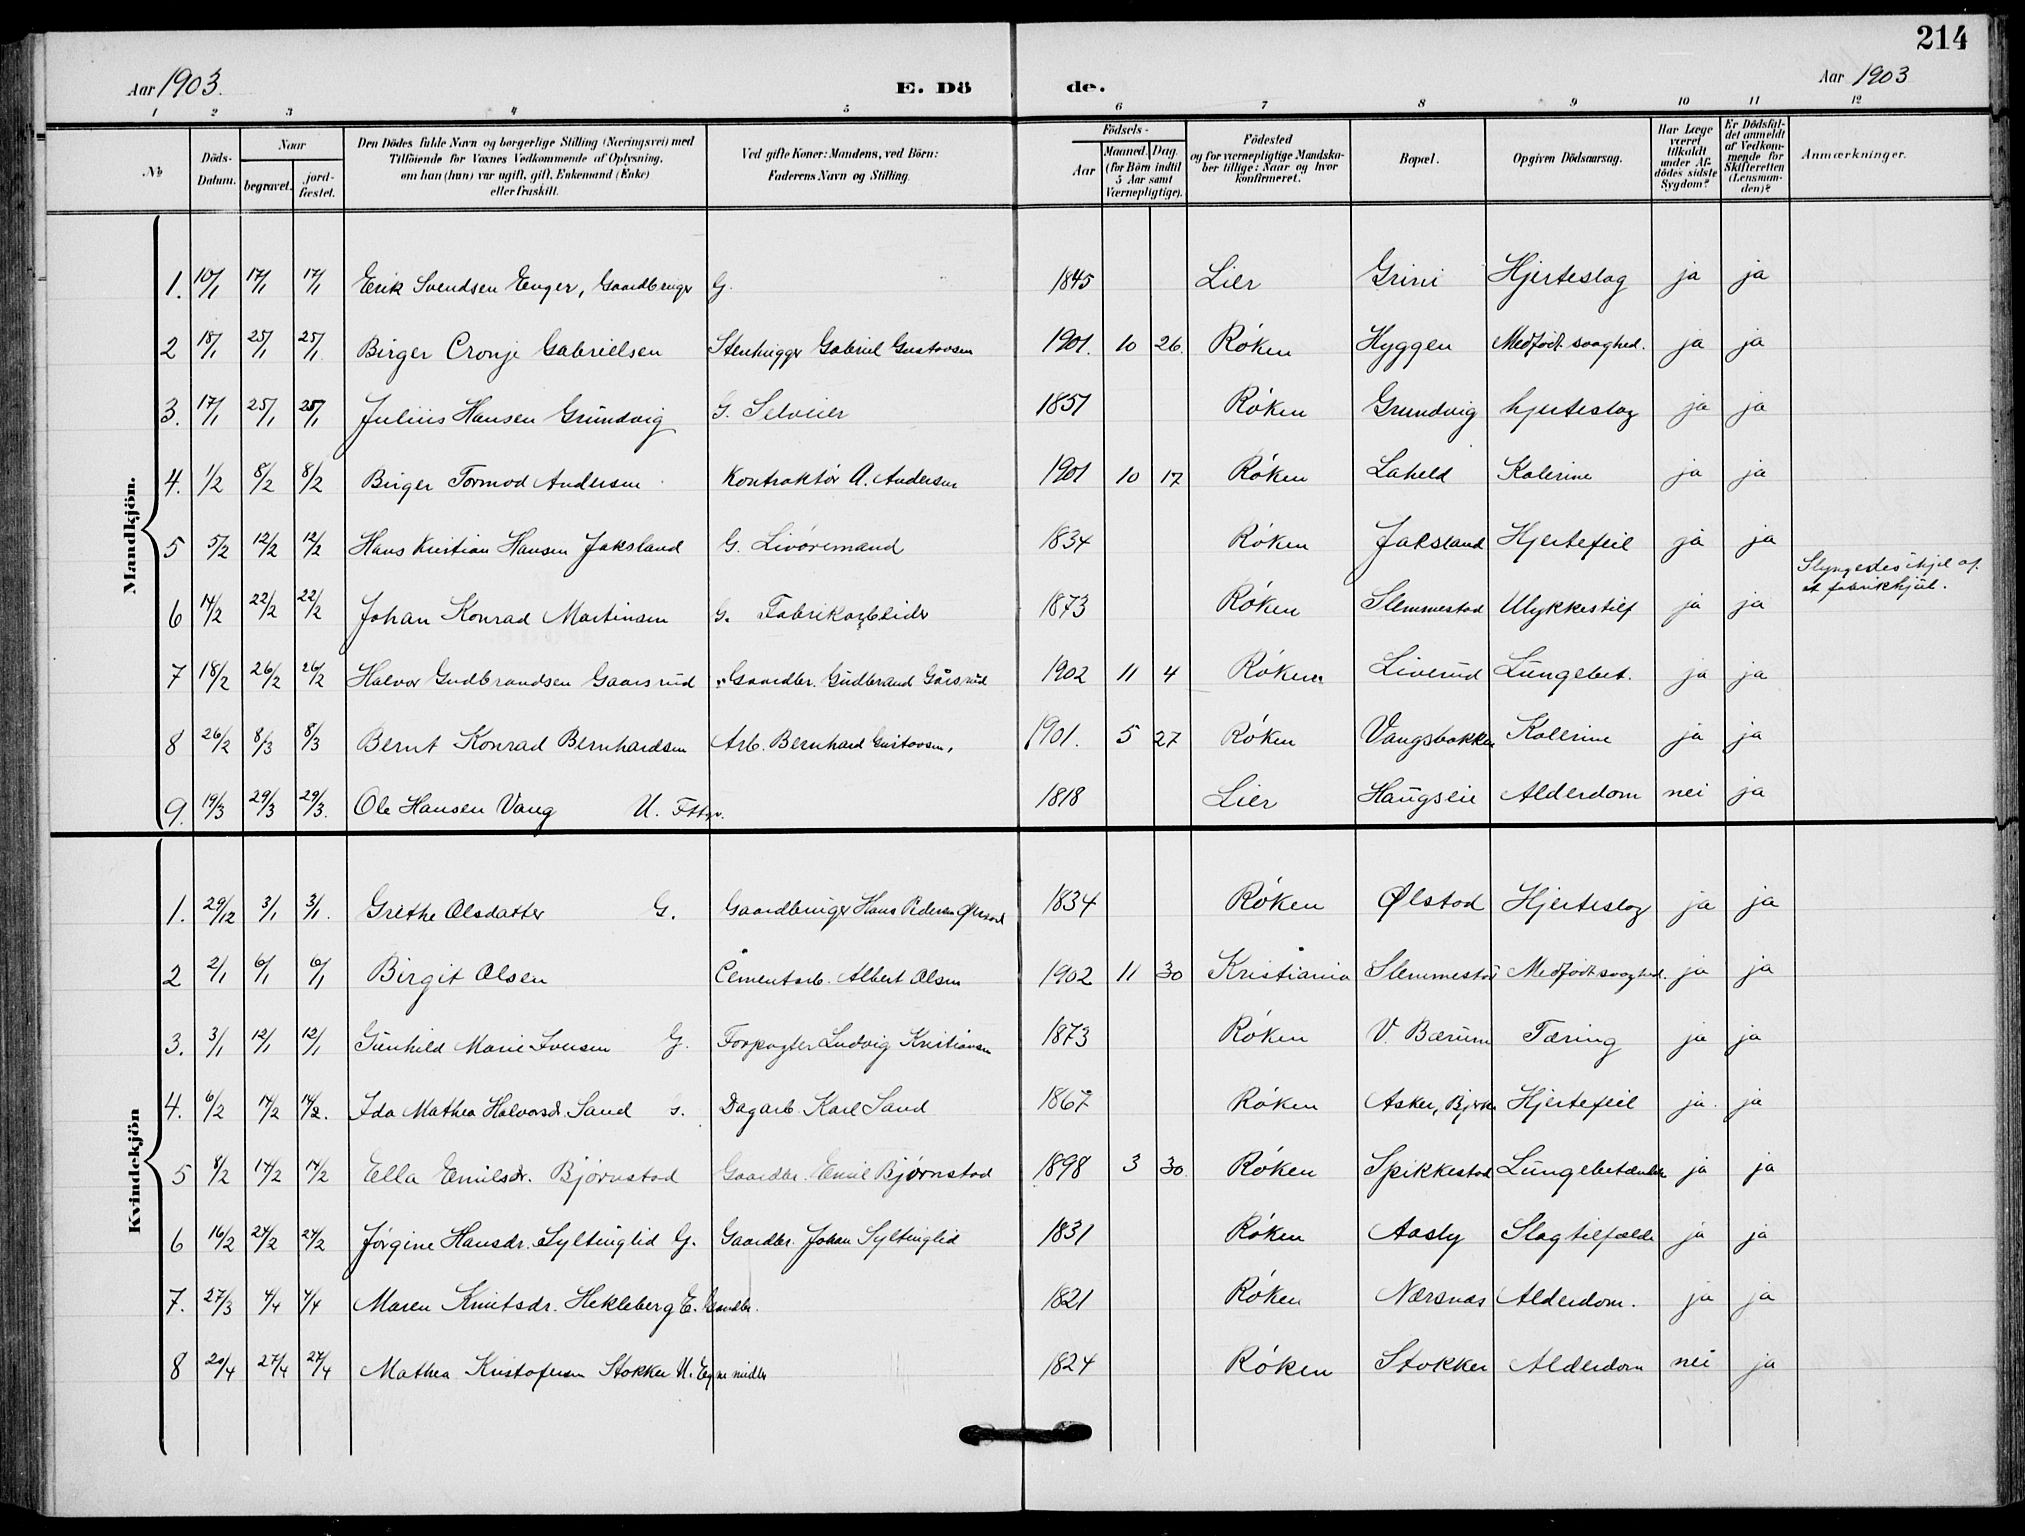 214
Aar 1903. E. Dö de. Aar 1903
1 2 3 4 5 6 7 8 9 10 11 12
No
Döds-Datum.
Naar
begravet.
jord-fæstet.
Den Dödes fulde Navn og borgerlige Stilling (Næringsvei) med
Tilföiende for Voxnes Vedkommende af Oplysning,
om han (hun) var ugift, gift, Enkemand (Enke)
eller fraskilt.
Ved gifte Koner: Mandens, ved Börn:
Faderens Navn og Stilling.
Födsels-
Aar
Maaned. Dag.
(for Börn indtil
5 Aar samt
Værnepligtige).
Födested
og for værnepligtige Mandska-
ber tillige: Naar og hvor
konfirmeret.
Bopæl.
Opgiven Dödsaarsag.
Har Læge
været
tilkaldt
under Af-
dødes sidste
Sygdom?
Er Dödsfal-
det anmeldt
af Vedkom-
mende for
Skifteretten
(Lensman-
den)?
Anmærkninger.
Mandkjön.
1. 10/1 17/1 17/1 Erik Svendsen Enger, Gaardbruger G. 1845 Lier Grini Hjerteslag ja ja
2 18/1 25/1 25/1 Birger Cronje Gabrielsen Stenhugger Gabriel Gustavsen 1901. 10 26. Røken Hyggen Medfödt svaghed. ja ja
3. 17/1 25/1 25/1 Julius Hansen Grundvig G. Selveier 1851 Røken Grundvig hjerteslag ja ja
4. 1/2 8/2 8/2 Birger Tormod Andersen Kontraktør A. Andersen 1901 10 17 Røken Laheld Kolerine ja ja
5 5/2 12/2 12/2 Hans Kristian Hansen Jaksland G. Livøremand 1834 Røken Jaksland Hjertefeil ja ja
Slyngedes ihjel af
et fabrikhjul.
6 14/2 22/2 22/2 Johan Konrad Martinsen G. Fabrikarbeider 1873 Røken Slemmestad Ulykkestilf ja ja
7 18/2 26/2 26/2 Halvor Gudbrandsen Gaarsrud Gaardbr. Gudbrand Gårsrud 1902 11 4 Røken Liverud Lungebet. ja ja
8 26/2 8/3 8/3 Bernt Konrad Bernhardsen Arb. Bernhard Gustavsen, 1901. 5 27 Røken Vangsbakken Kolerine ja ja
9. 19/3 29/3 29/3. Ole Hansen Vang U. Fttgv. 1818 Lier Haugseie Alderdom nei ja
Kvindekjön
1. 29/12 3/1 3/1. Grethe Olsdatter G. Gaardbruger Hans Pedersen Ølstad 1834 Røken Ølstad Hjerteslag ja ja
2 2/1 6/1 6/1 Birgit Olsen Cementarb. Albert Olsen 1902 11 30 Kristiania Slemmestad Medfödt svaghed. ja ja
3. 3/1 12/1 12/1 Gunhild Marie Iversen G. Forpagter Ludvig Kristiansen 1873 Røken V. Bærum Tæring ja ja
4. 6/2 14/2 14/2. Ida Mathea Halvorsdr. Sand G. Dagarb. Karl Sand 1867 Røken Asker, Bjerke Hjertefeil ja. ja
5 8/2 14/2 14/2 Ella Emilsdr. Bjørnstad Gaardbr. Emil Bjørnstad 1898 3 30. Røken Spikkestad Lungebetændelse ja ja
6 16/2 24/2 24/2 Jørgine Hansdr. Syltinglid G. Gaardbr. Johan Syltinglid 1831 Røken Aasly Slagtilfælde ja ja
7. 27/3 4/4 4/4 Maren Knutsdr. Hekleberg E. Gaardbr. 1821 Røken Nærsnæs Alderdom. ja ja
8 20/4 27/4 27/4 Mathea Kristofersen Stokker U. Egne midler 1824 Røken Stokker Alderdom nei ja